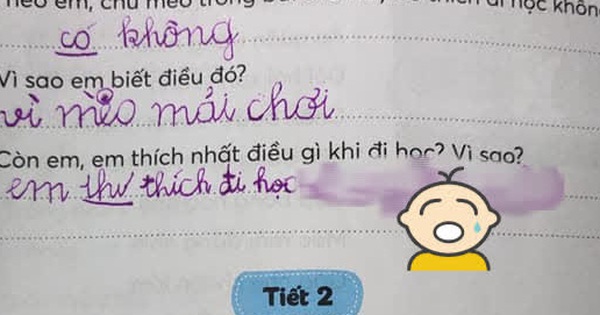 em, chú mèo trong đi học không
có không
Vì sao em biết điều đó?
vì mèo mải chơi
Còn em, em thích nhất điều gì khi đi học? Vì sao?
em thư thích đi học
Tiết 2